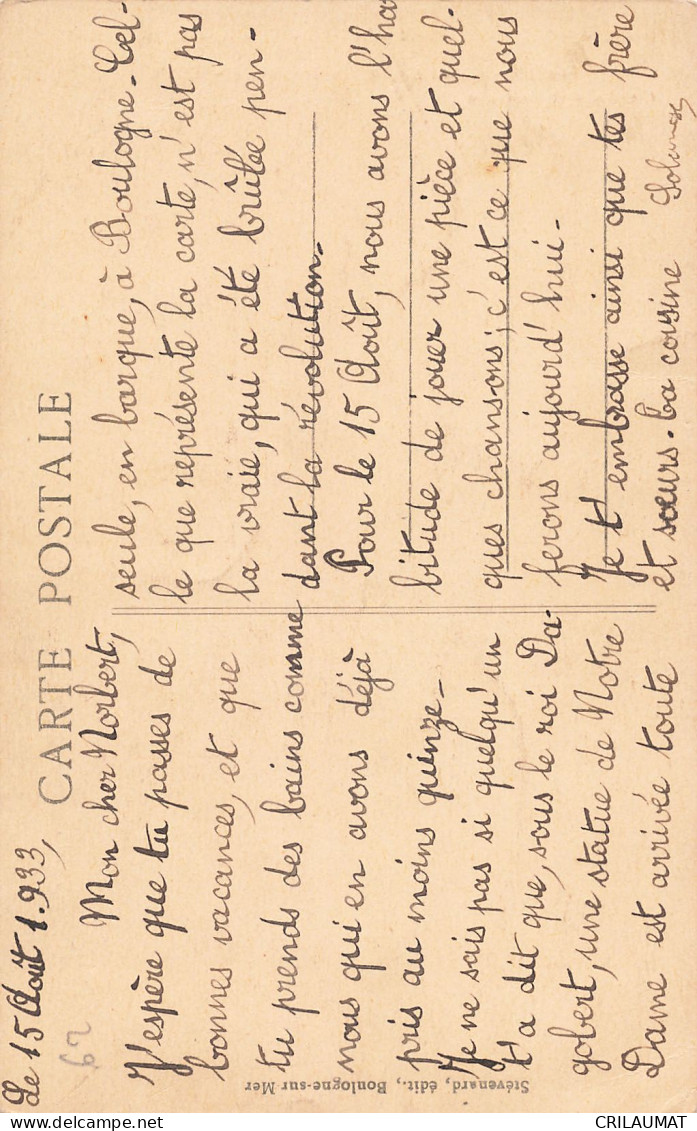 Le 15 Août 1.933,
CARTE POSTALE
Mon cher Norbert,
J'espère que tu passes de
bonnes vacances, et que
tu prends des bains comme
nous qui en avons déjà
pris au moins quinze-
Je ne sais pas si quelqu'un
t'a dit que, sous le roi Da-
gobert, une statue de Notre
Dame est arrivée toute
seule, en barque, à Boulogne-Cel-
le que représente la carte, n'est pas
la vraie, qui a été brûlée pen-
dant la révolution-
Pour le 15 Août, nous avons l'ha
bitude de jouer une pièce et quel-
ques chansons; c'est ce que nous
ferons aujourd'hui-
Je t'embrasse ainsi que tes frère
et sœurs. ta cousine
Solange
62
Stévenard, édit., Boulogne-sur-Mer
delcampe.net
CRILAUMAT